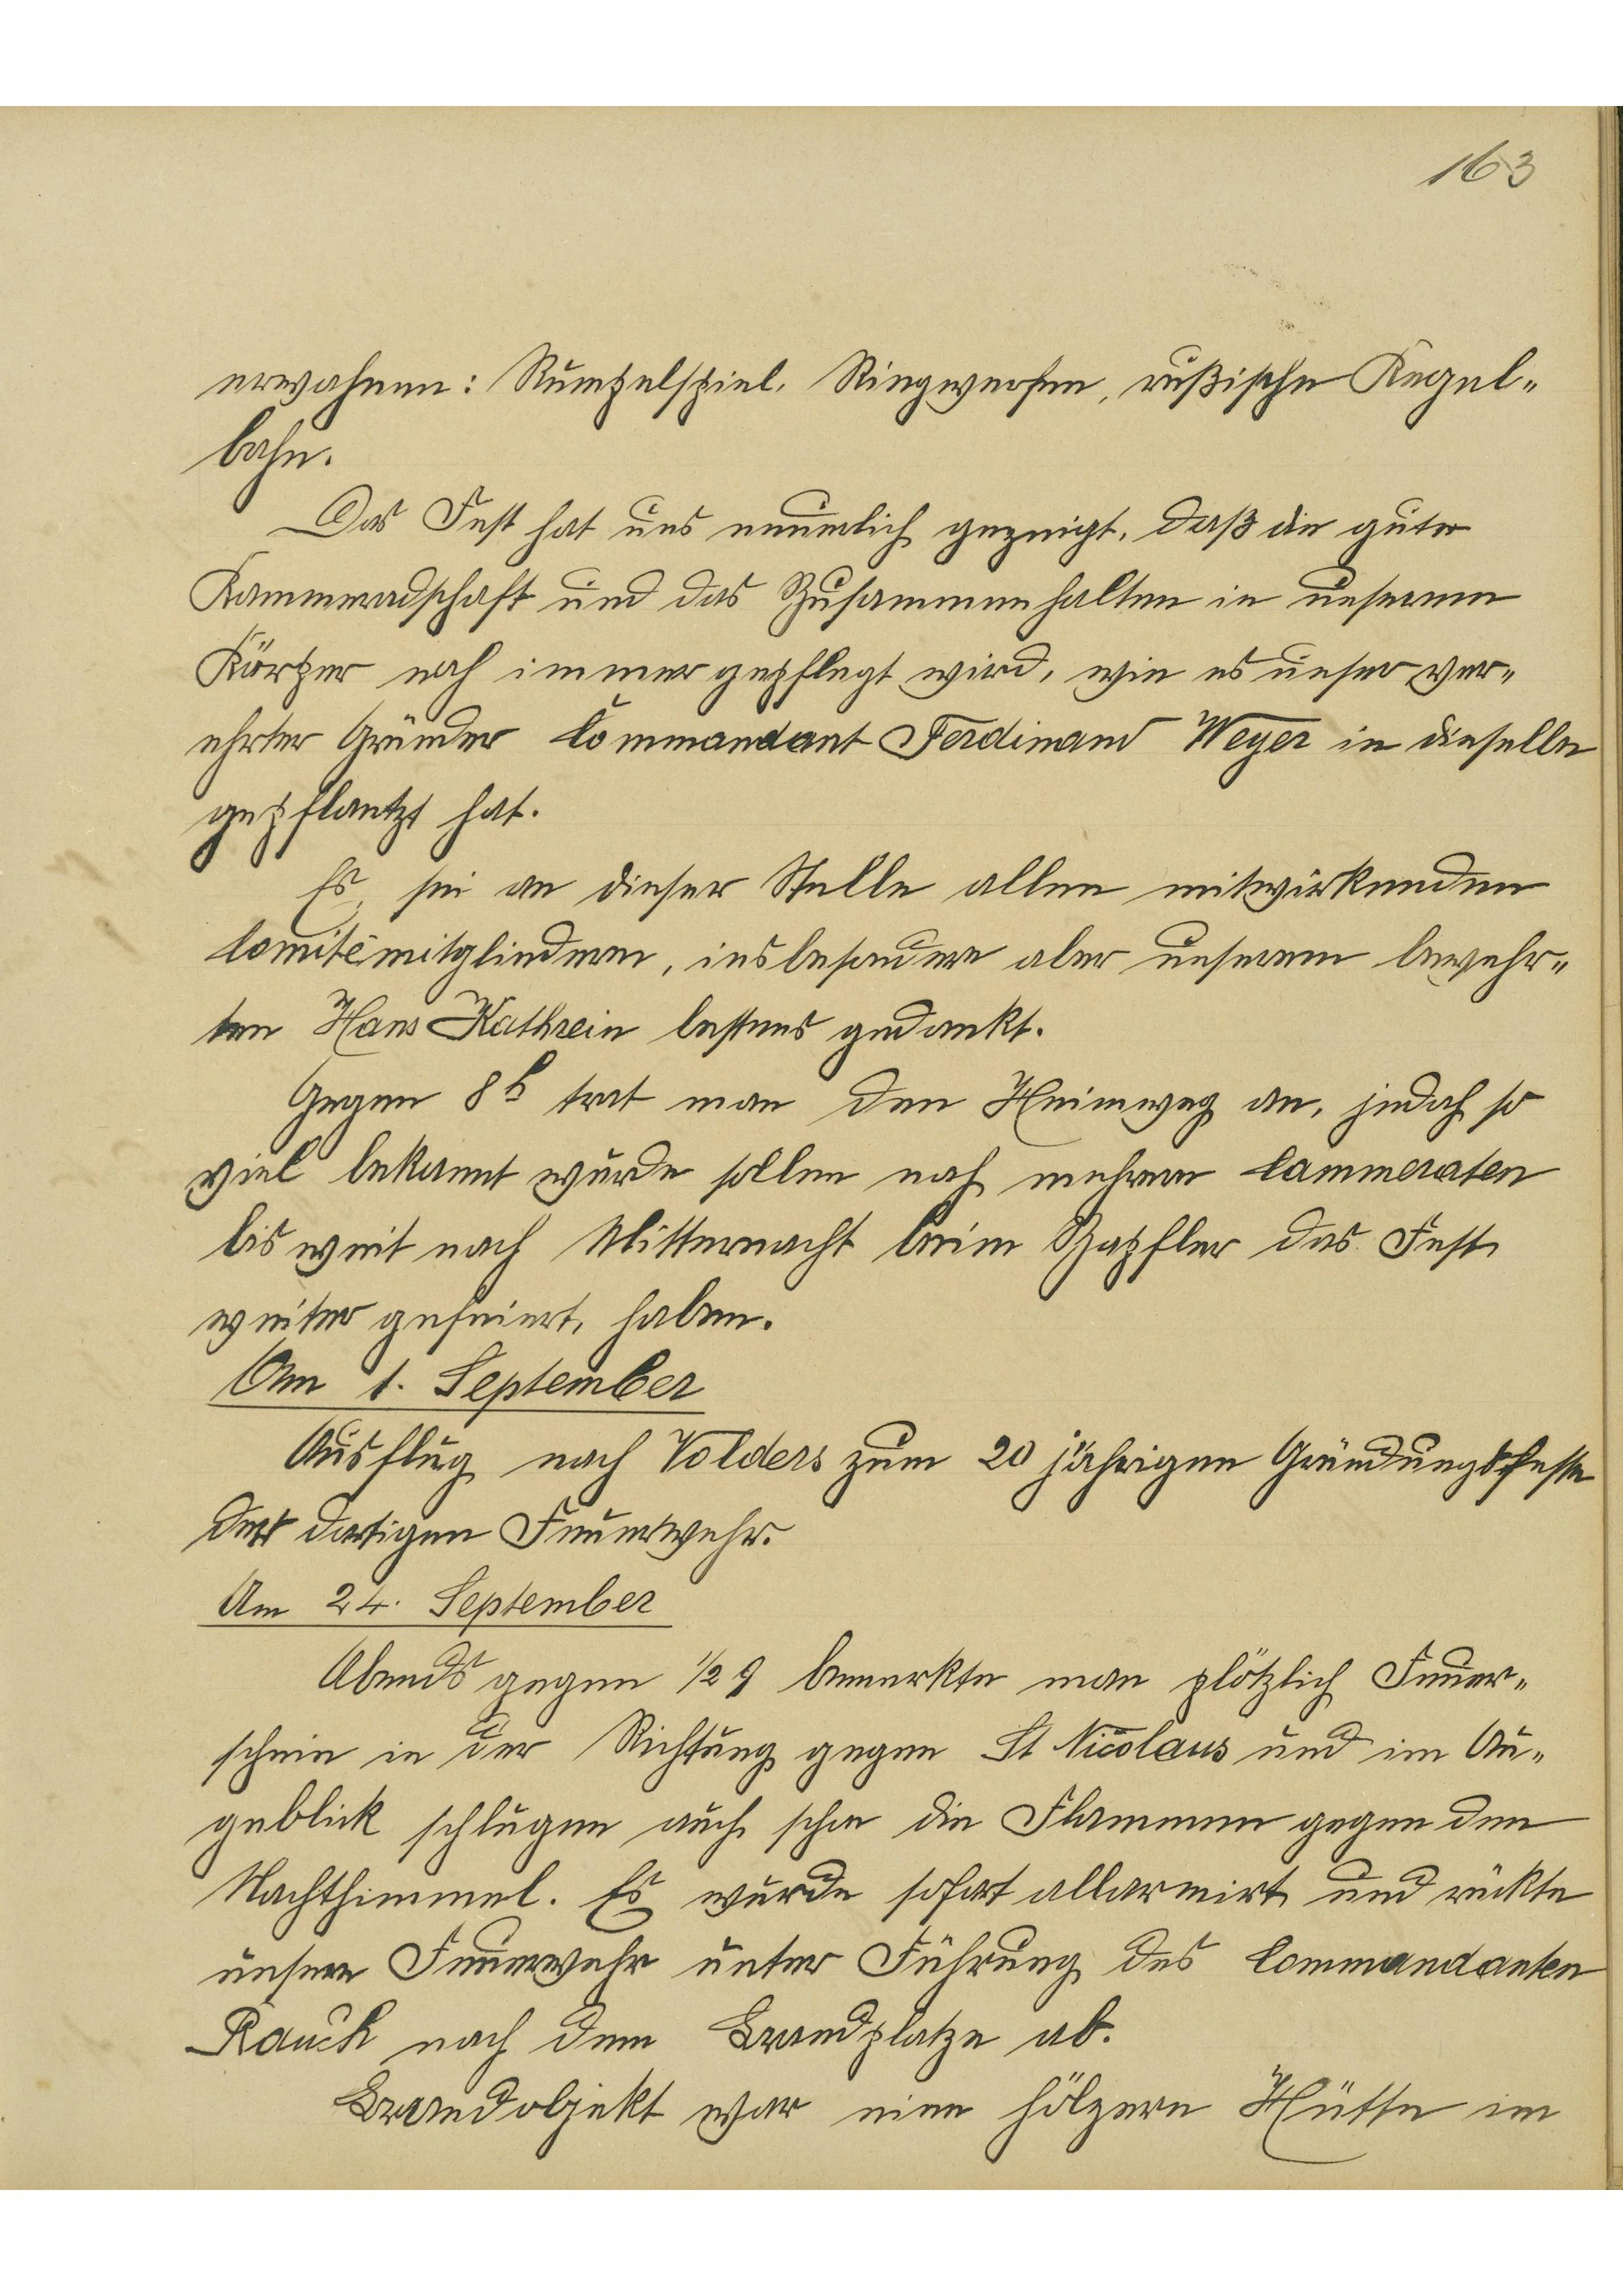 163
erwahnen: Rumpelspiel, Ringwerfen, rußische Kegel-
bahn.
Das Fest hat uns neuerlich gezeigt, daß die gute
Kammeradschaft und das Zusammenhalten in unserem
Körper noch immer gepflegt wird, wie es unser ver-
ehrter Gründer Commandant Ferdinand Weyer in dieselbe
gepflantzt hat.
Es sei an dieser Stelle allen mitwirkenden
Comitèmitgliedern, insbesondere aber unserem bewehr-
ten Hans Kathrein bestens gedankt.
Gegen 8h trat man den Heimweg an, jedoch so
viel bekannt wurde sollen noch mehrere Cammeraten
bis weit nach Mitternacht beim Zapfler das Fest
weiter gefeiert haben.
Am 1. September
Ausflug nach Volders zum 20 jährigen Gründungsfeste
der dortigen Feuerwehr.
Am 24. September
Abends gegen 1/2 9 bemerkte man plötzlich Feuer-
schein in der Richtung gegen St Nicolaus und im Au-
geblick schlugen auch schon die Flammen gegen den
Nachthimmel. Es wurde sofort allarmirt und rückte
unsere Feuerwehr unter Führung des Commandanten
Rauch nach dem Brandplatze ab.
Brandobjekt war eine hölzern Hütte im